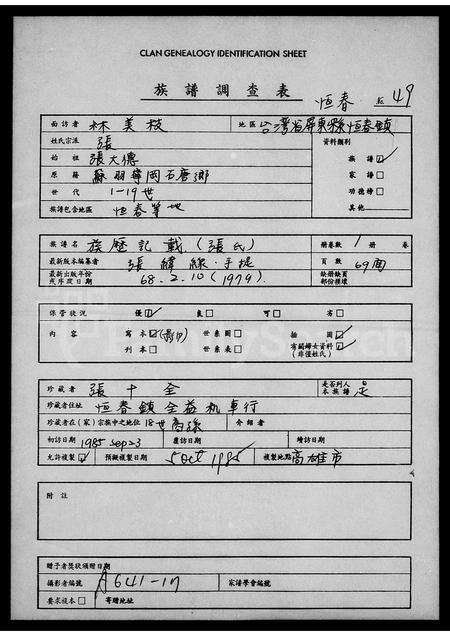 CLAN GENEALOGY IDENTIFICATION SHEET
族譜調查表
恒春 № 49
面訪者 林美枝 地區 台灣省屏東縣恒春鎮
姓氏宗派 張 資料類別
始祖 張大德 族譜☑
原籍 家譜□
世代 1-19世 功德榜□
族譜包含地區 恒春等地 其他
族譜名 族歷記載(張氏) 冊卷數 1 冊 卷
最新版本編纂者 張緯線·手抄 頁數 69面
最新出版年份或序政日期 68.2.10(1979) 缺冊缺頁部份積壞
保管狀況 優☑ 良□ 可□ 劣□
內容 寫本☑(影印) 世系圖□ 插圖☑
刊本□ 世系表□ 有關婦女資料☑
(非僅姓氏)
珍藏者 張十全 是否列入本族譜 是
珍藏者住址 恒春鎮全益机車行
珍藏者在(家)宗族中之地位 18世裔孫 介紹者
初訪日期 1985 Sep 23 覆訪日期 續訪日期
允許複製☑ 預擬複製日期 5 Oct 1985 複製地點 高雄市
附註
贈予者獎狀頒贈日期
攝影者編號 A641-17 家譜學會編號
要求複本□ 寄贈地址